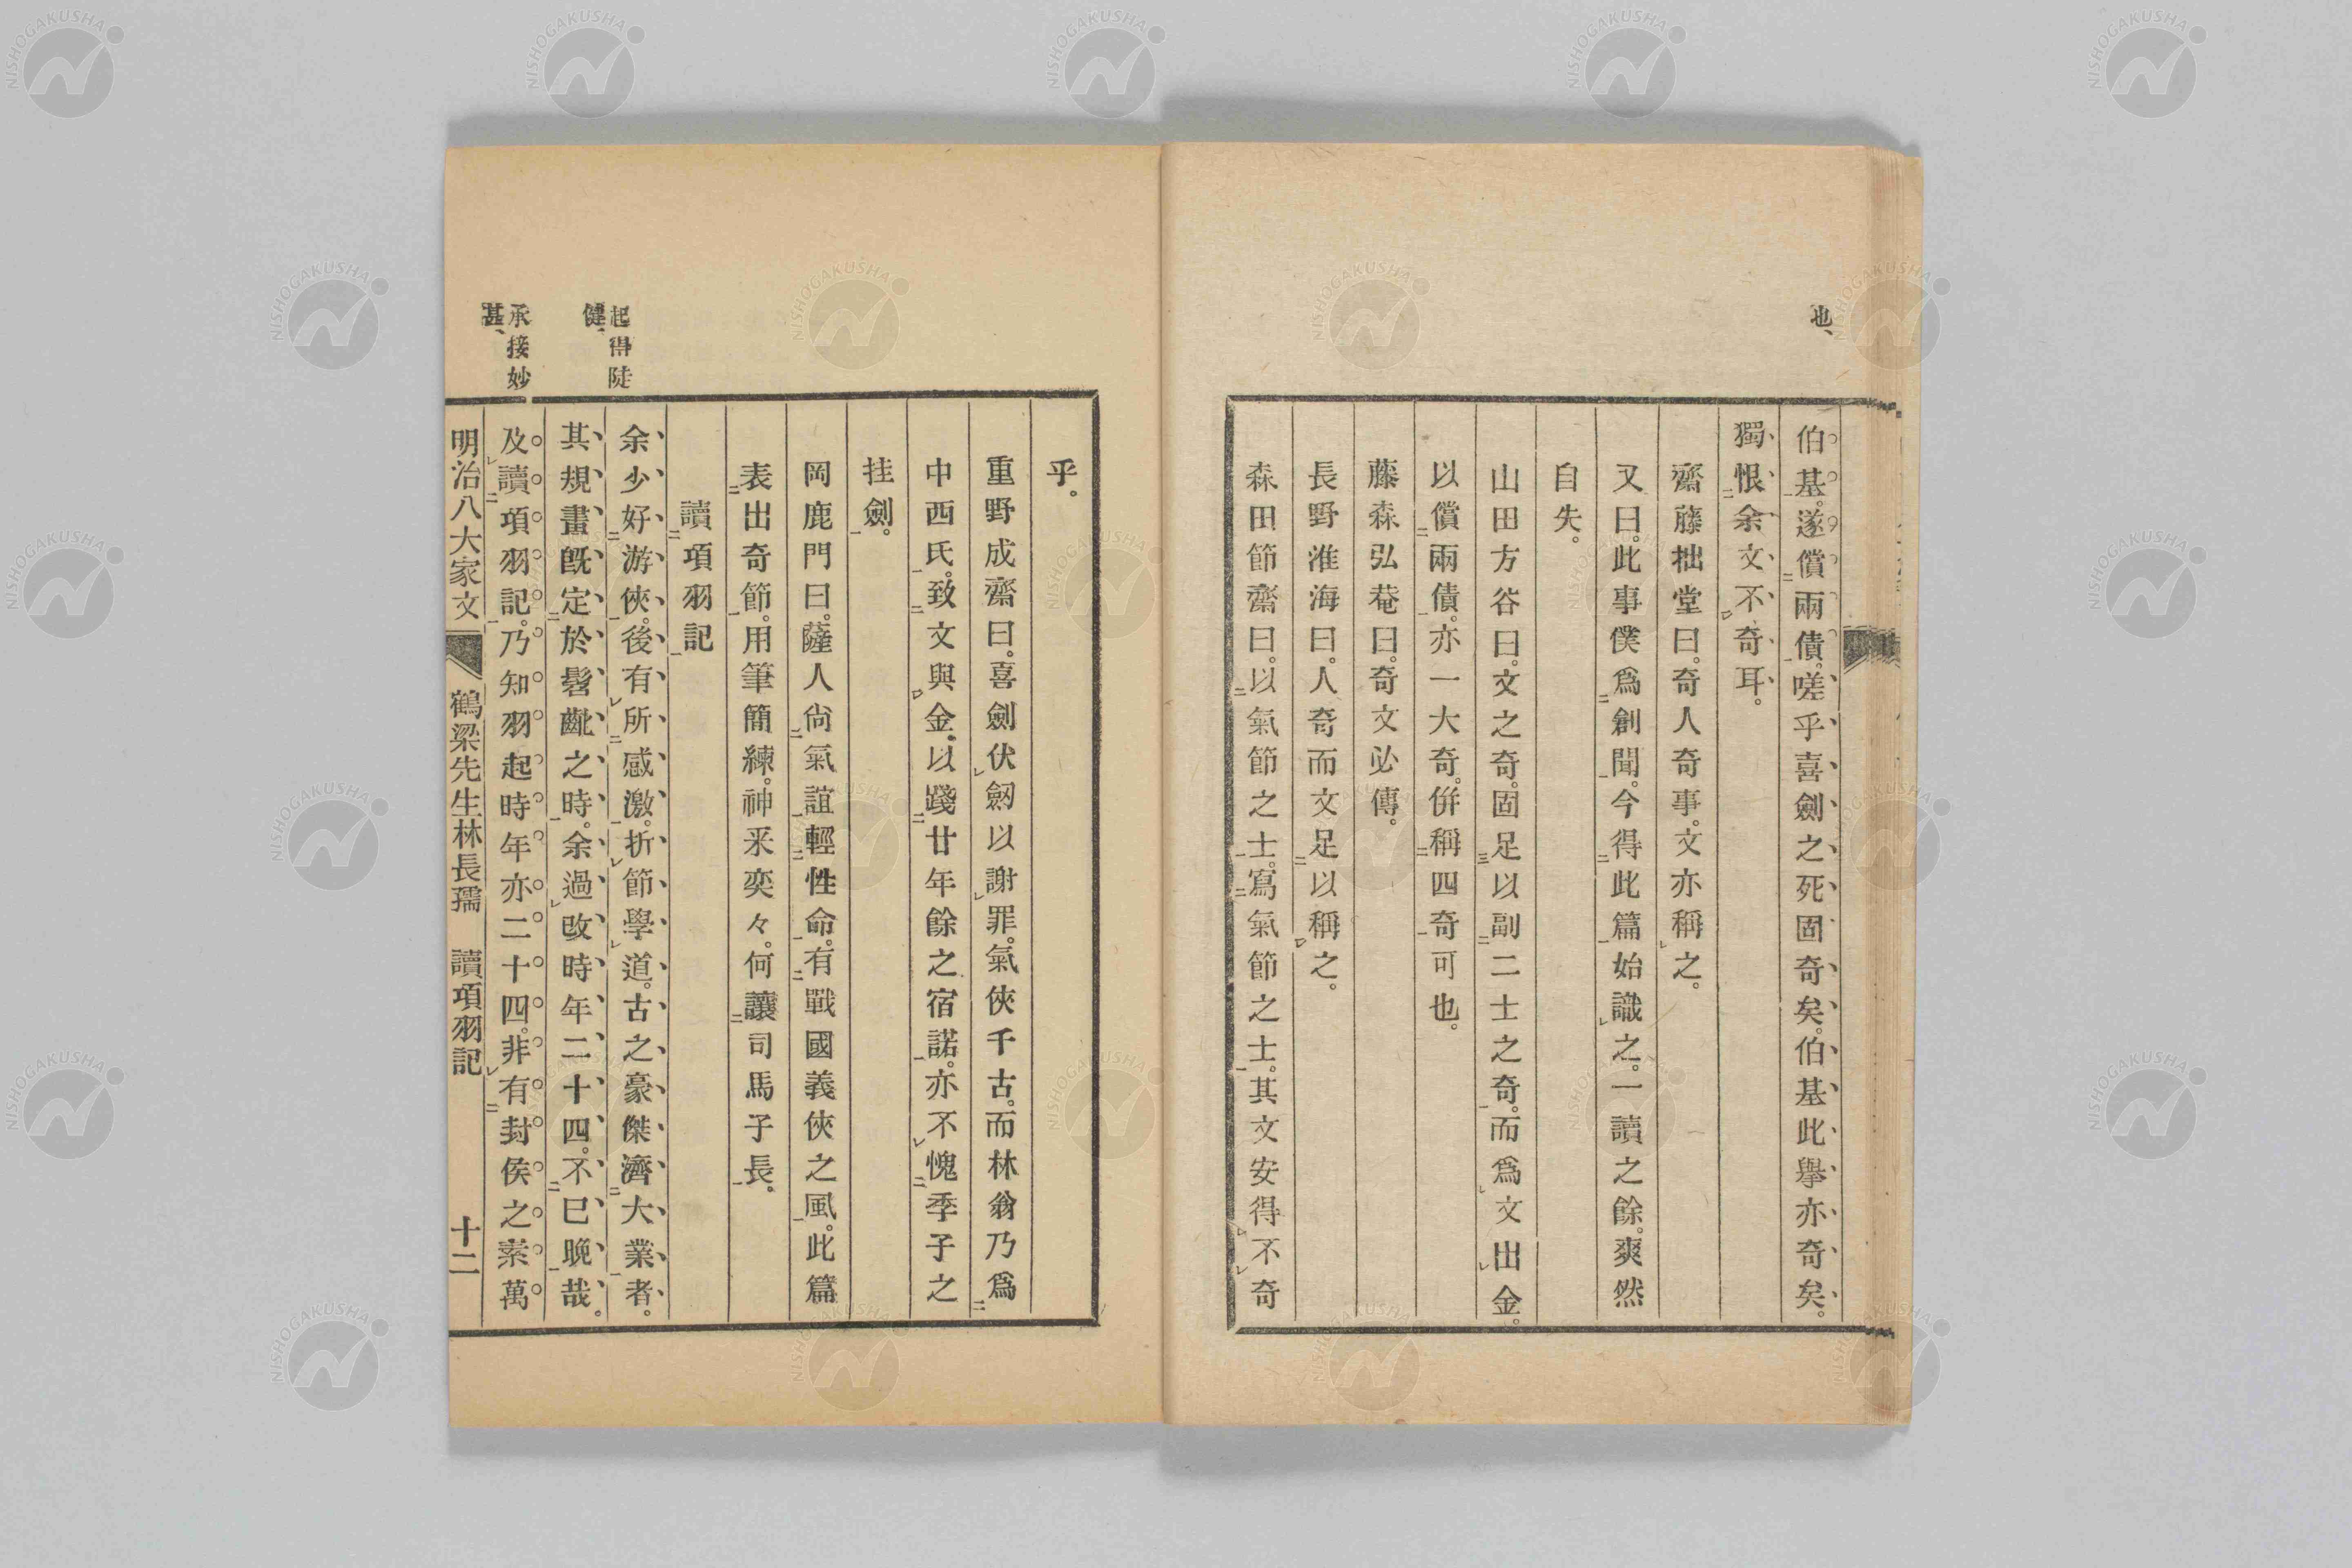 也、
伯基。遂償兩債。嗟乎喜劍之死固奇矣。伯基此擧亦奇矣。
獨恨余文不奇耳。
齋藤拙堂曰。奇人奇事。文亦稱之。
又曰。此事僕爲創聞。今得此篇始識之。一讀之餘。爽然
自失。
山田方谷曰。文之奇。固足以副二士之奇。而爲文出金。
以償兩債。亦一大奇。併稱四奇可也。
藤森弘菴曰。奇文必傳。
長野淮海曰。人奇而文足以稱之。
森田節齋曰。以氣節之士。寫氣節之士。其文安得不奇
乎。
重野成齋曰。喜劍伏劒以謝罪。氣俠千古。而林翁乃爲
中西氏。致文與金。以踐廿年餘之宿諾。亦不愧季子之
挂劍。
岡鹿門曰。薩人尙氣誼輕性命。有戰國義俠之風。此篇
表出奇節。用筆簡練。神釆奕々。何讓司馬子長。
讀項羽記
起得陡
健、
余少好游俠。後有所感激。折節學道。古之豪傑濟大業者。
其規畫旣定於髫齔之時。余過改時年二十四。不已晚哉。
承接妙
甚、
及讀項羽記。乃知羽起時年亦二十四。非有封侯之素萬
明治八大家文 鶴梁先生林長孺 讀項羽記 十二
NISHOGAKUSHA